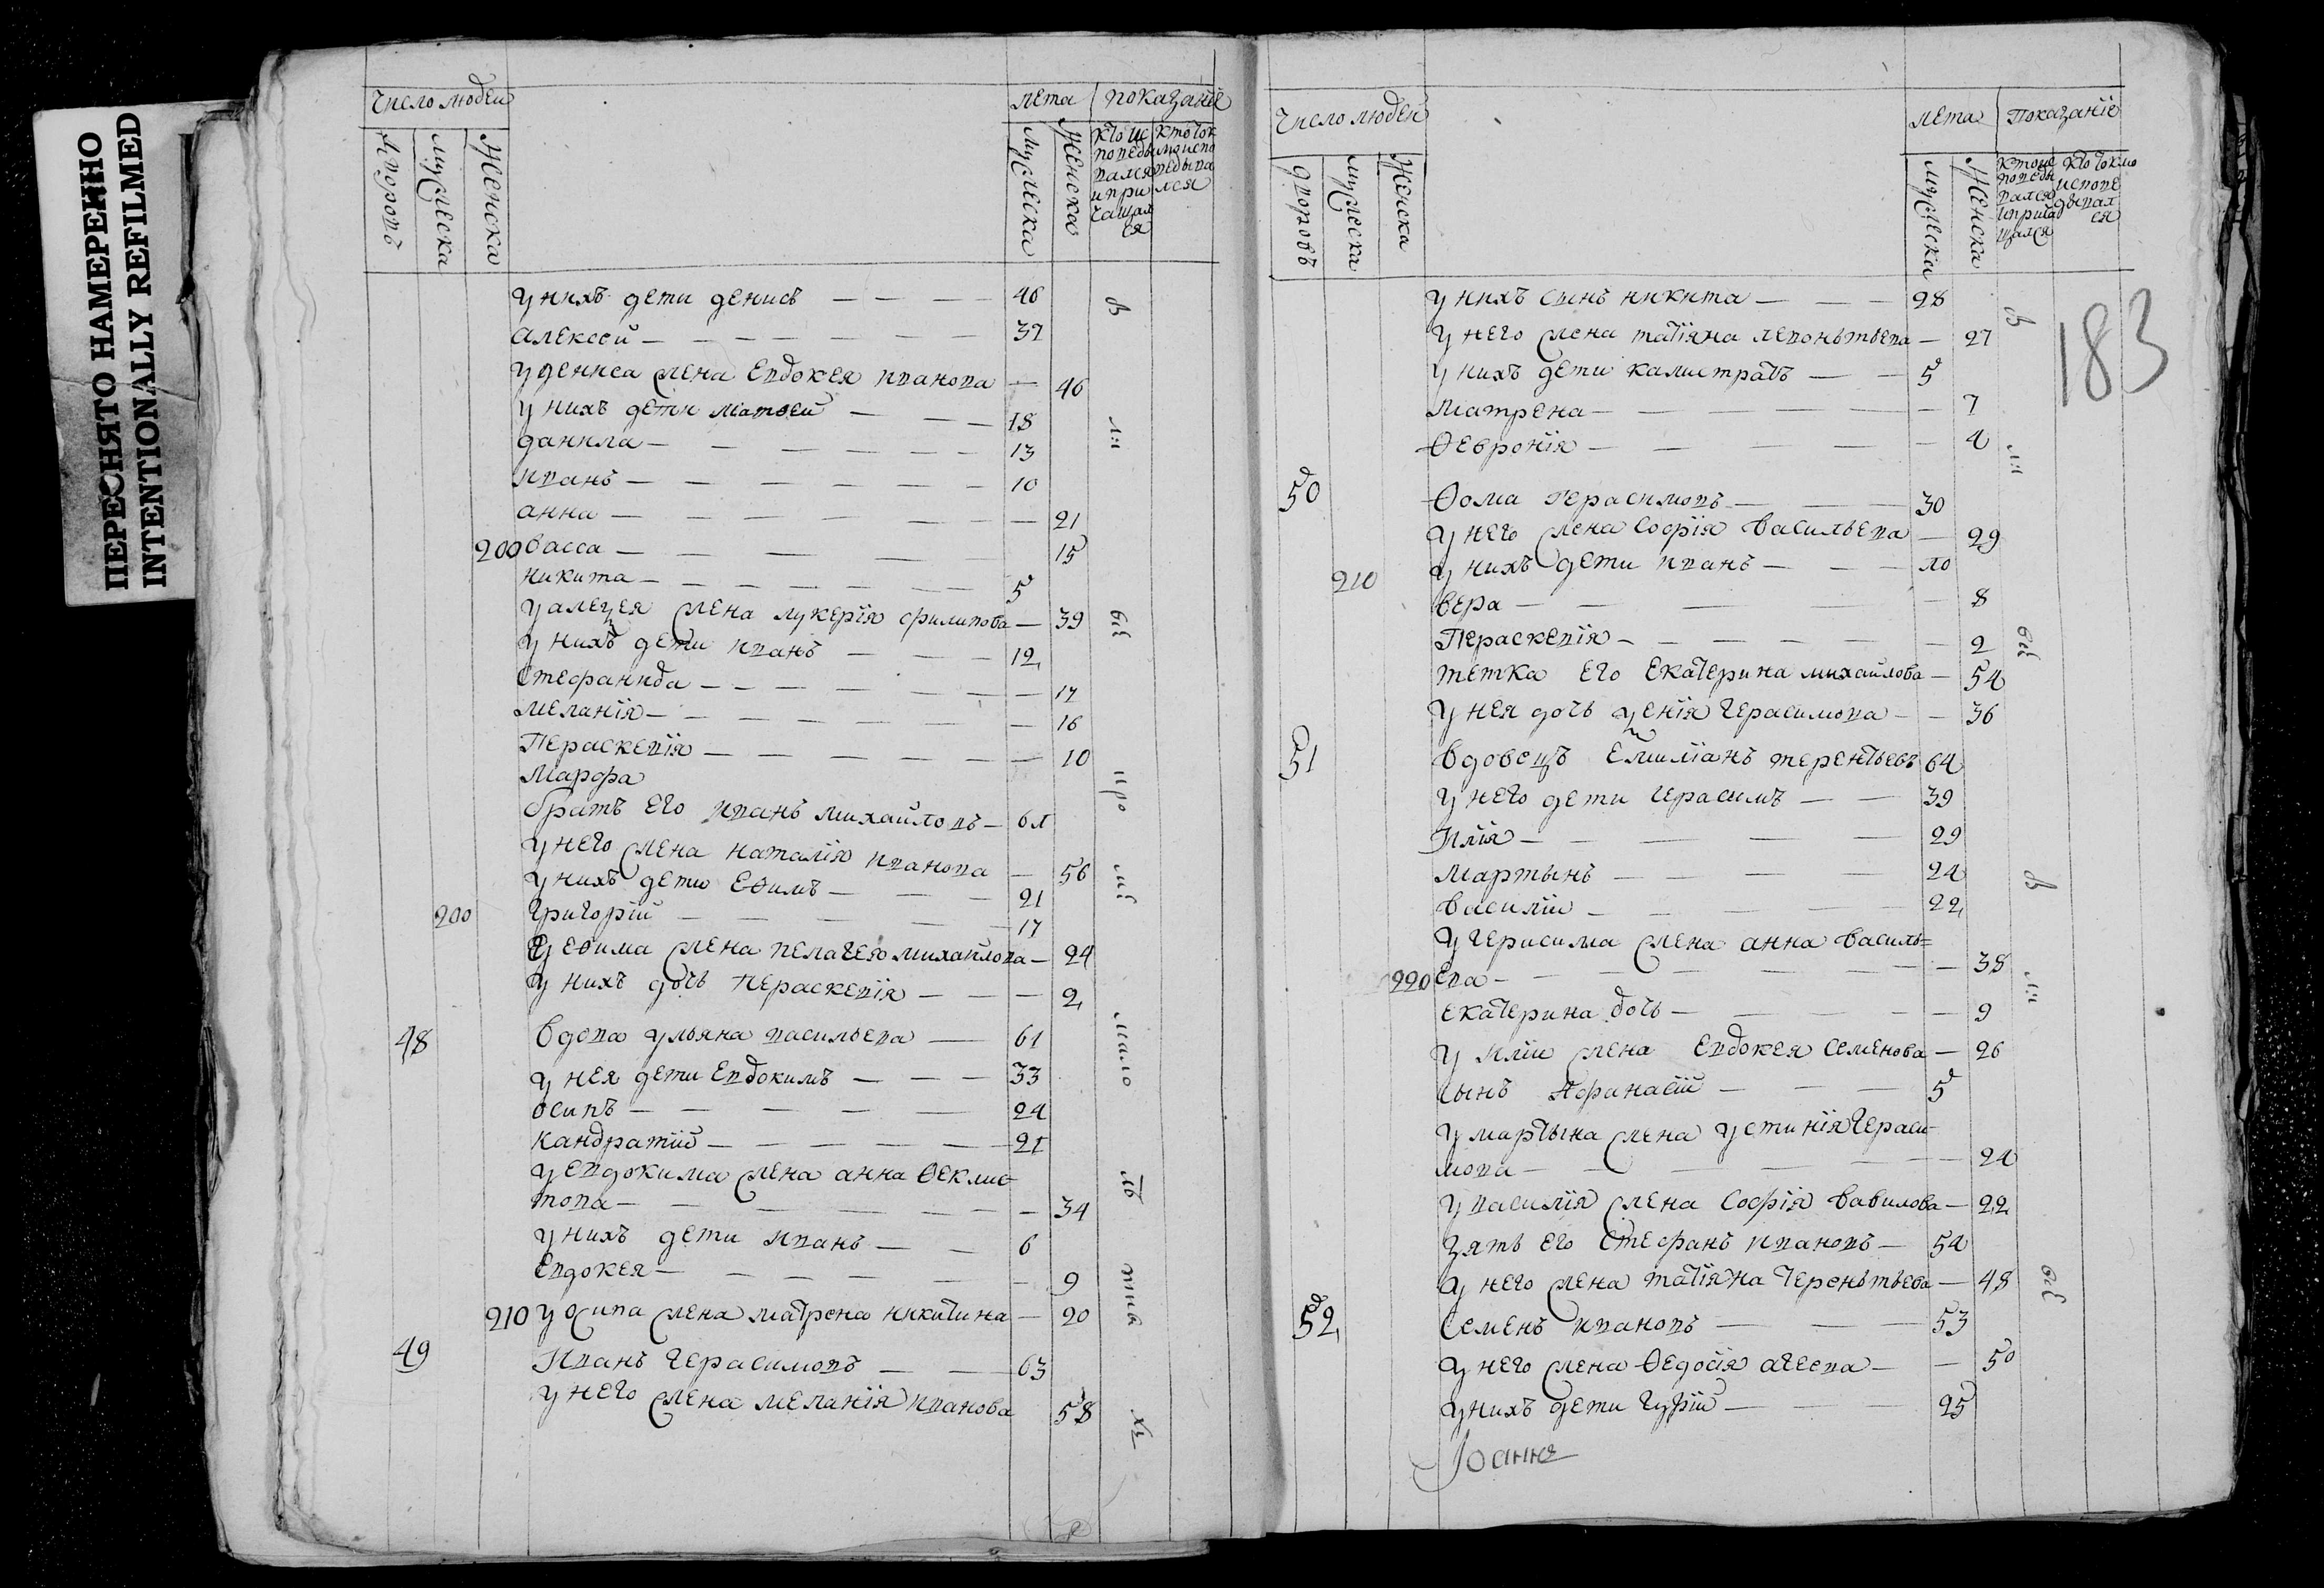 ПЕРЕСНЯТО НАМЕРЕННО
INTENTIONALLY REFILMED
число людей
лета
показание
дворовъ
мужеска
женска
мужеска
женска
кто ис
поведы
вался
и при
чащал
ся
кто ток
мо испо
ведыва
лся
у нихъ дети денисъ — 46
алексей — 37
у дениса жена Евдокея иванова — 46
у нихъ дети матвей — 18
данила — 13
иванъ — 10
анна — 21
200 васса — 15
никита — 5
у алеѯея жена лукерїя филипова — 39
у нихъ дети иванъ — 12
стефанида — 17
меланїя — 16
Пераскевїя — 10
Марфа
братъ его иванъ михайловъ — 61
у него жена наталїя иванова — 56
у нихъ дети Еѳимъ — 21
200 григорїй — 17
у еѳима жена пелагея михайлова — 24
у нихъ дочь пераскевїя — 2
48 вдова ульяна васильева — 61
у нея дети Евдокимъ — 33
осипъ — 24
кандратїй — 21
у евдокима жена анна ѳеклис-
това — 34
у нихъ дети иванъ — 6
Евдокея — 9
210 у осипа жена матрена никитина — 20
49 Иванъ герасимовъ — 63
у него жена меланїя иванова 58
число людей
лета
Показанїе
дворовъ
мужеска
женска
мужеска
женска
кто ис
поведы
вался
и прича
щался
кто токмо
испове
дывал
ся
183
у нихъ сынъ никита — 28
у него жена татїяна леоньтьева — 27
у нихъ дети калистратъ — 5
матрена — 7
ѳевронїя — 4
50 ѳома герасимовъ — 30
у него жена софїя васильева — 29
210 у нихъ дети иванъ — 10
вера — 8
Пераскевїя — 2
тетка его екатерина михайлова — 54
у нея дочь ѯенїя герасимова — 36
51 вдовецъ емилїанъ терентьевъ 64
у него дети герасимъ — 39
Илїя — 29
мартынъ — 24
василїй — 22
у герасима жена анна василь=
220 ева — 38
екатерина дочь — 9
у илїи жена евдокея семенова — 26
сынъ Афанасїй — 5
у мартына жена устинїя гераси
мова — 24
у василїя жена софїя вавилова — 22
зять его стефанъ ивановъ — 54
у него жена татїяна тереньтьева — 48
52 семенъ ивановъ — 53
у него жена ѳедосїя агеева — 50
у нихъ дети гурїй — 25
Іоаннъ